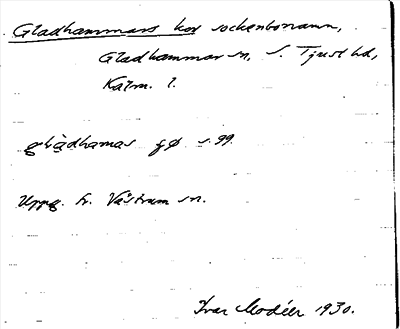 Gladhammars kor sockenbonamn,
Gladhammar sn, S. Tjust hd,
Kalm. l.
glàdhamas gø s. 99.
Uppg. fr. Västrum sn.
Ivar Modéer 1930.